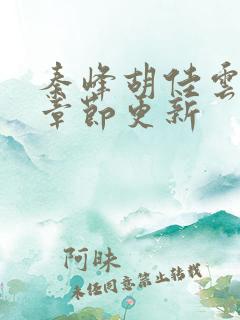 秦峰胡佳雲
章節更新
阿昧
未经同意禁止转载